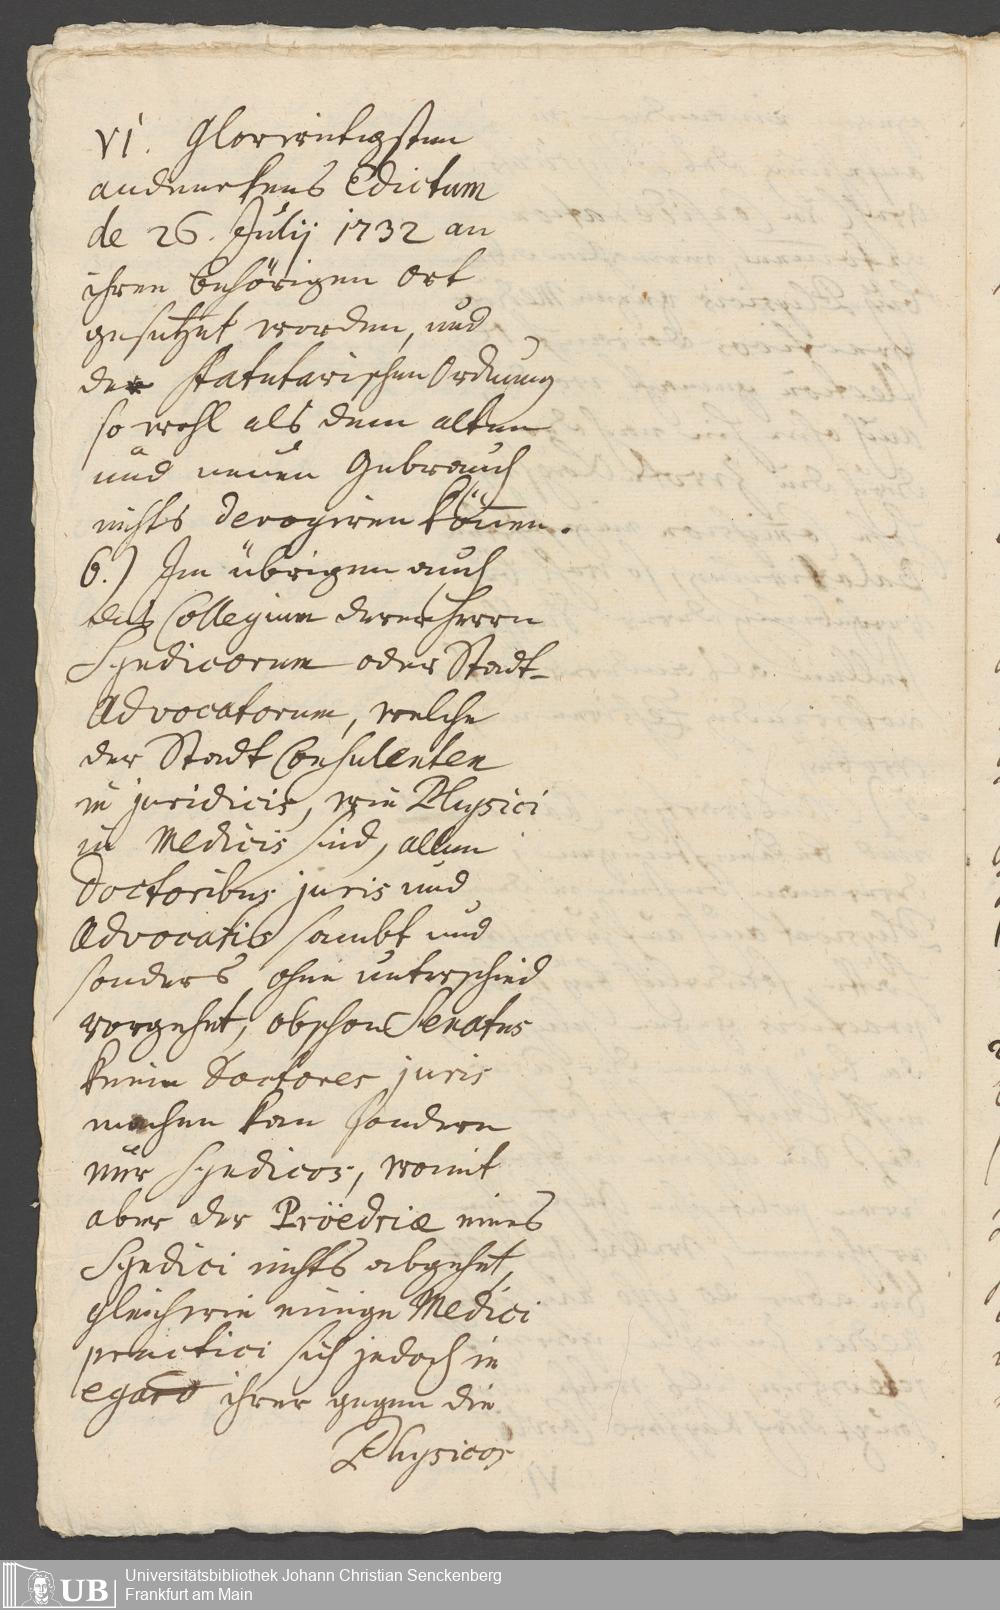 VI. Glorwürtigsten
andenckens Edictum
de 26. Julij 1732 an
ihren behörigen Ort
gesetzet worden, und
der statutarischen Ordnung
so wohl als dem alten
und neuen Gebrauch
nichts derogiren können.
6.) Im übrigen auch
das Collegium derer Herrn
Syndicorum oder Stadt-
Advocatorum, welche
der Stadt Consulenten
in juridicis, wie Physici
in Medicis sind, allen
Doctoribus juris und
Advocatis sambt und
sonders ohne unterschied
vorgehet, obschon Senatus
keine Doctores juris
machen kan sondern
nur Syndicos, womit
aber der Pröedriæ eines
Syndici nichts abgehet,
gleichwie einige Medici
practici sich jedoch in
egard ihrer gegen die
Physicos
UB
Universitätsbibliothek Johann Christian Senckenberg
Frankfurt am Main